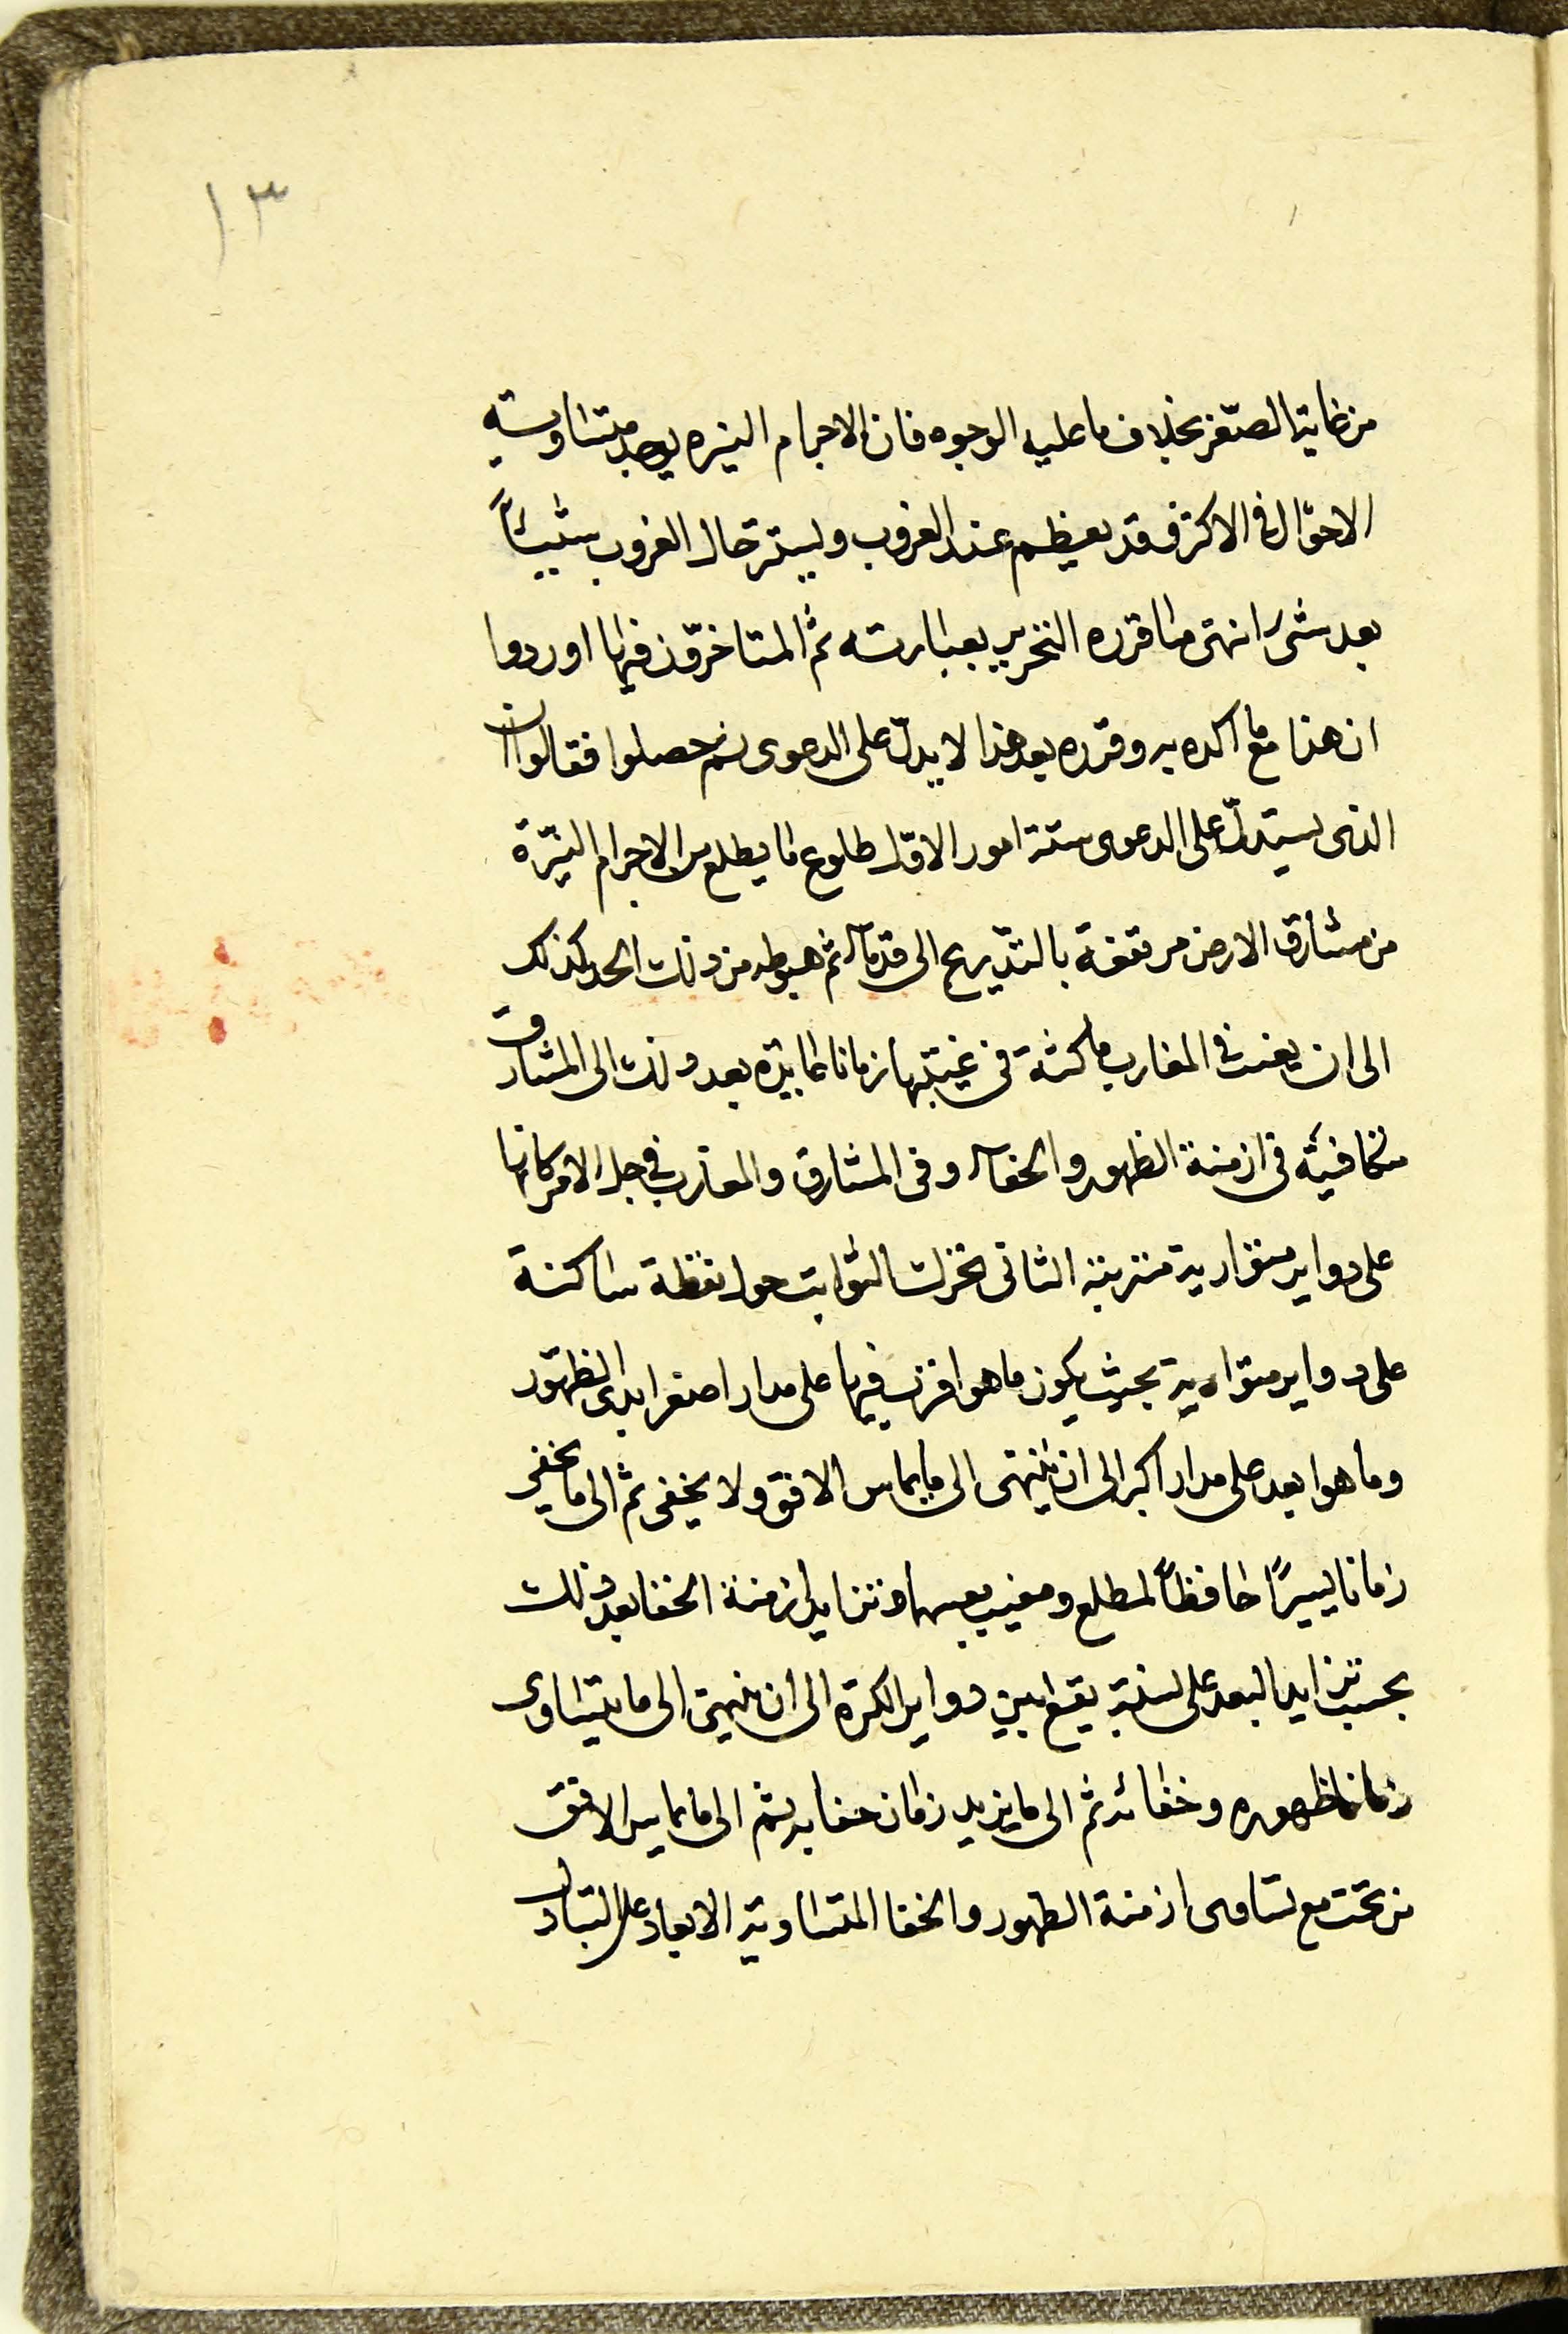 ١٣
من غاية الصغر بخلاف ما عليه الوجود فان الاجرام النيره يوجد متساوية
الاحوال فى الاكثر فقد يعظم عند الغروب ويستتر حال الغروب شيئاً
بعد شئ انتهى ما قرره النحرير بعبارته ثم المتاخرون فيما اوردوا
ان هذا مع ما اكده به وقرره بعد هذا لا يدل على الدعوى ثم حصلوا فقالوا ان
الذى يستدل على الدعوى ستة امور الاول طلوع ما يطلع من الاجرام النيرة
من مشارق الارض مرتفعة بالتدريج الى قدر ما ثم هبوطه من ذلك الحد كذلك
الى ان يغيب فى المغارب ماكثة فى غيبتها زمانا عايدة بعد ذلك الى المشارق
متكافيئه فى ازمنة الظهور والخفاء وفى المشارق والمغارب فى جل الامر كانها
على دواير متوازية مترتبة الثانى تحرك الثوابت حول نقطة ساكنة
على دواير متوازية بحيث يكون ما هو اقرب فيها على مدار اصغر ابدى الظهور
وما هو ابعد على مدار اكبر الى ان ينتهى الى ما يماس الافق ولا يخفى ثم الى ما يخفى
زمانا يسيراً حافظاً لمطلع ومغيب بعينهما وتتزايد ازمنة الخفا بعد ذلك
بحسب تزايد البعد على نسبة يقع بين دواير الكرة الى ان ينتهى الى ما يتساوى
زمانا ظهوره وخفائه ثم الى ما يزيد زمان خفايه ثم الى ما يماس الافق
من تحت مع تساوى ازمنة الظهور والخفا المتساوية الابعاد على التبادل